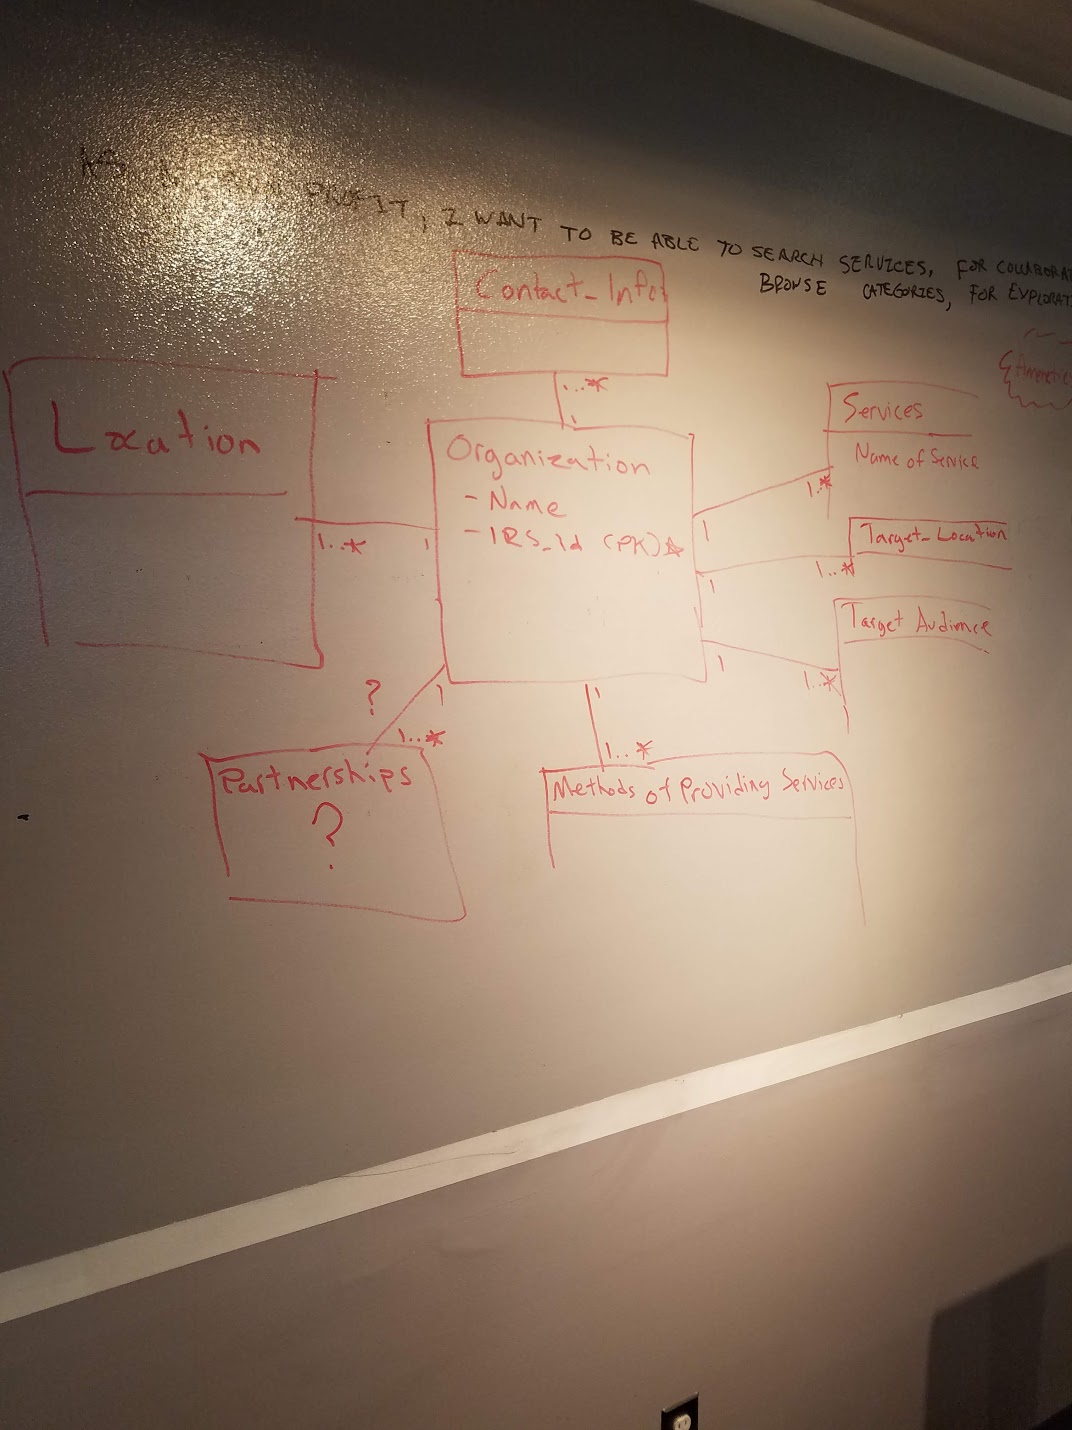 PROFIT, I WANT TO BE ABLE TO SEARCH SERVICES, FOR COLLABORA
BROWSE CATEGORIES, FOR EXPLORAT
Contact_Info
1..*
1
Location
1..*
1
Organization
- Name
- IRS_Id (PK)☆
Services
Name of Service
1..*
1
Target_Location
1..*
1
Target Audience
1..*
1
?
1
1..*
Partnerships
?
1
1..*
Methods of Providing Services